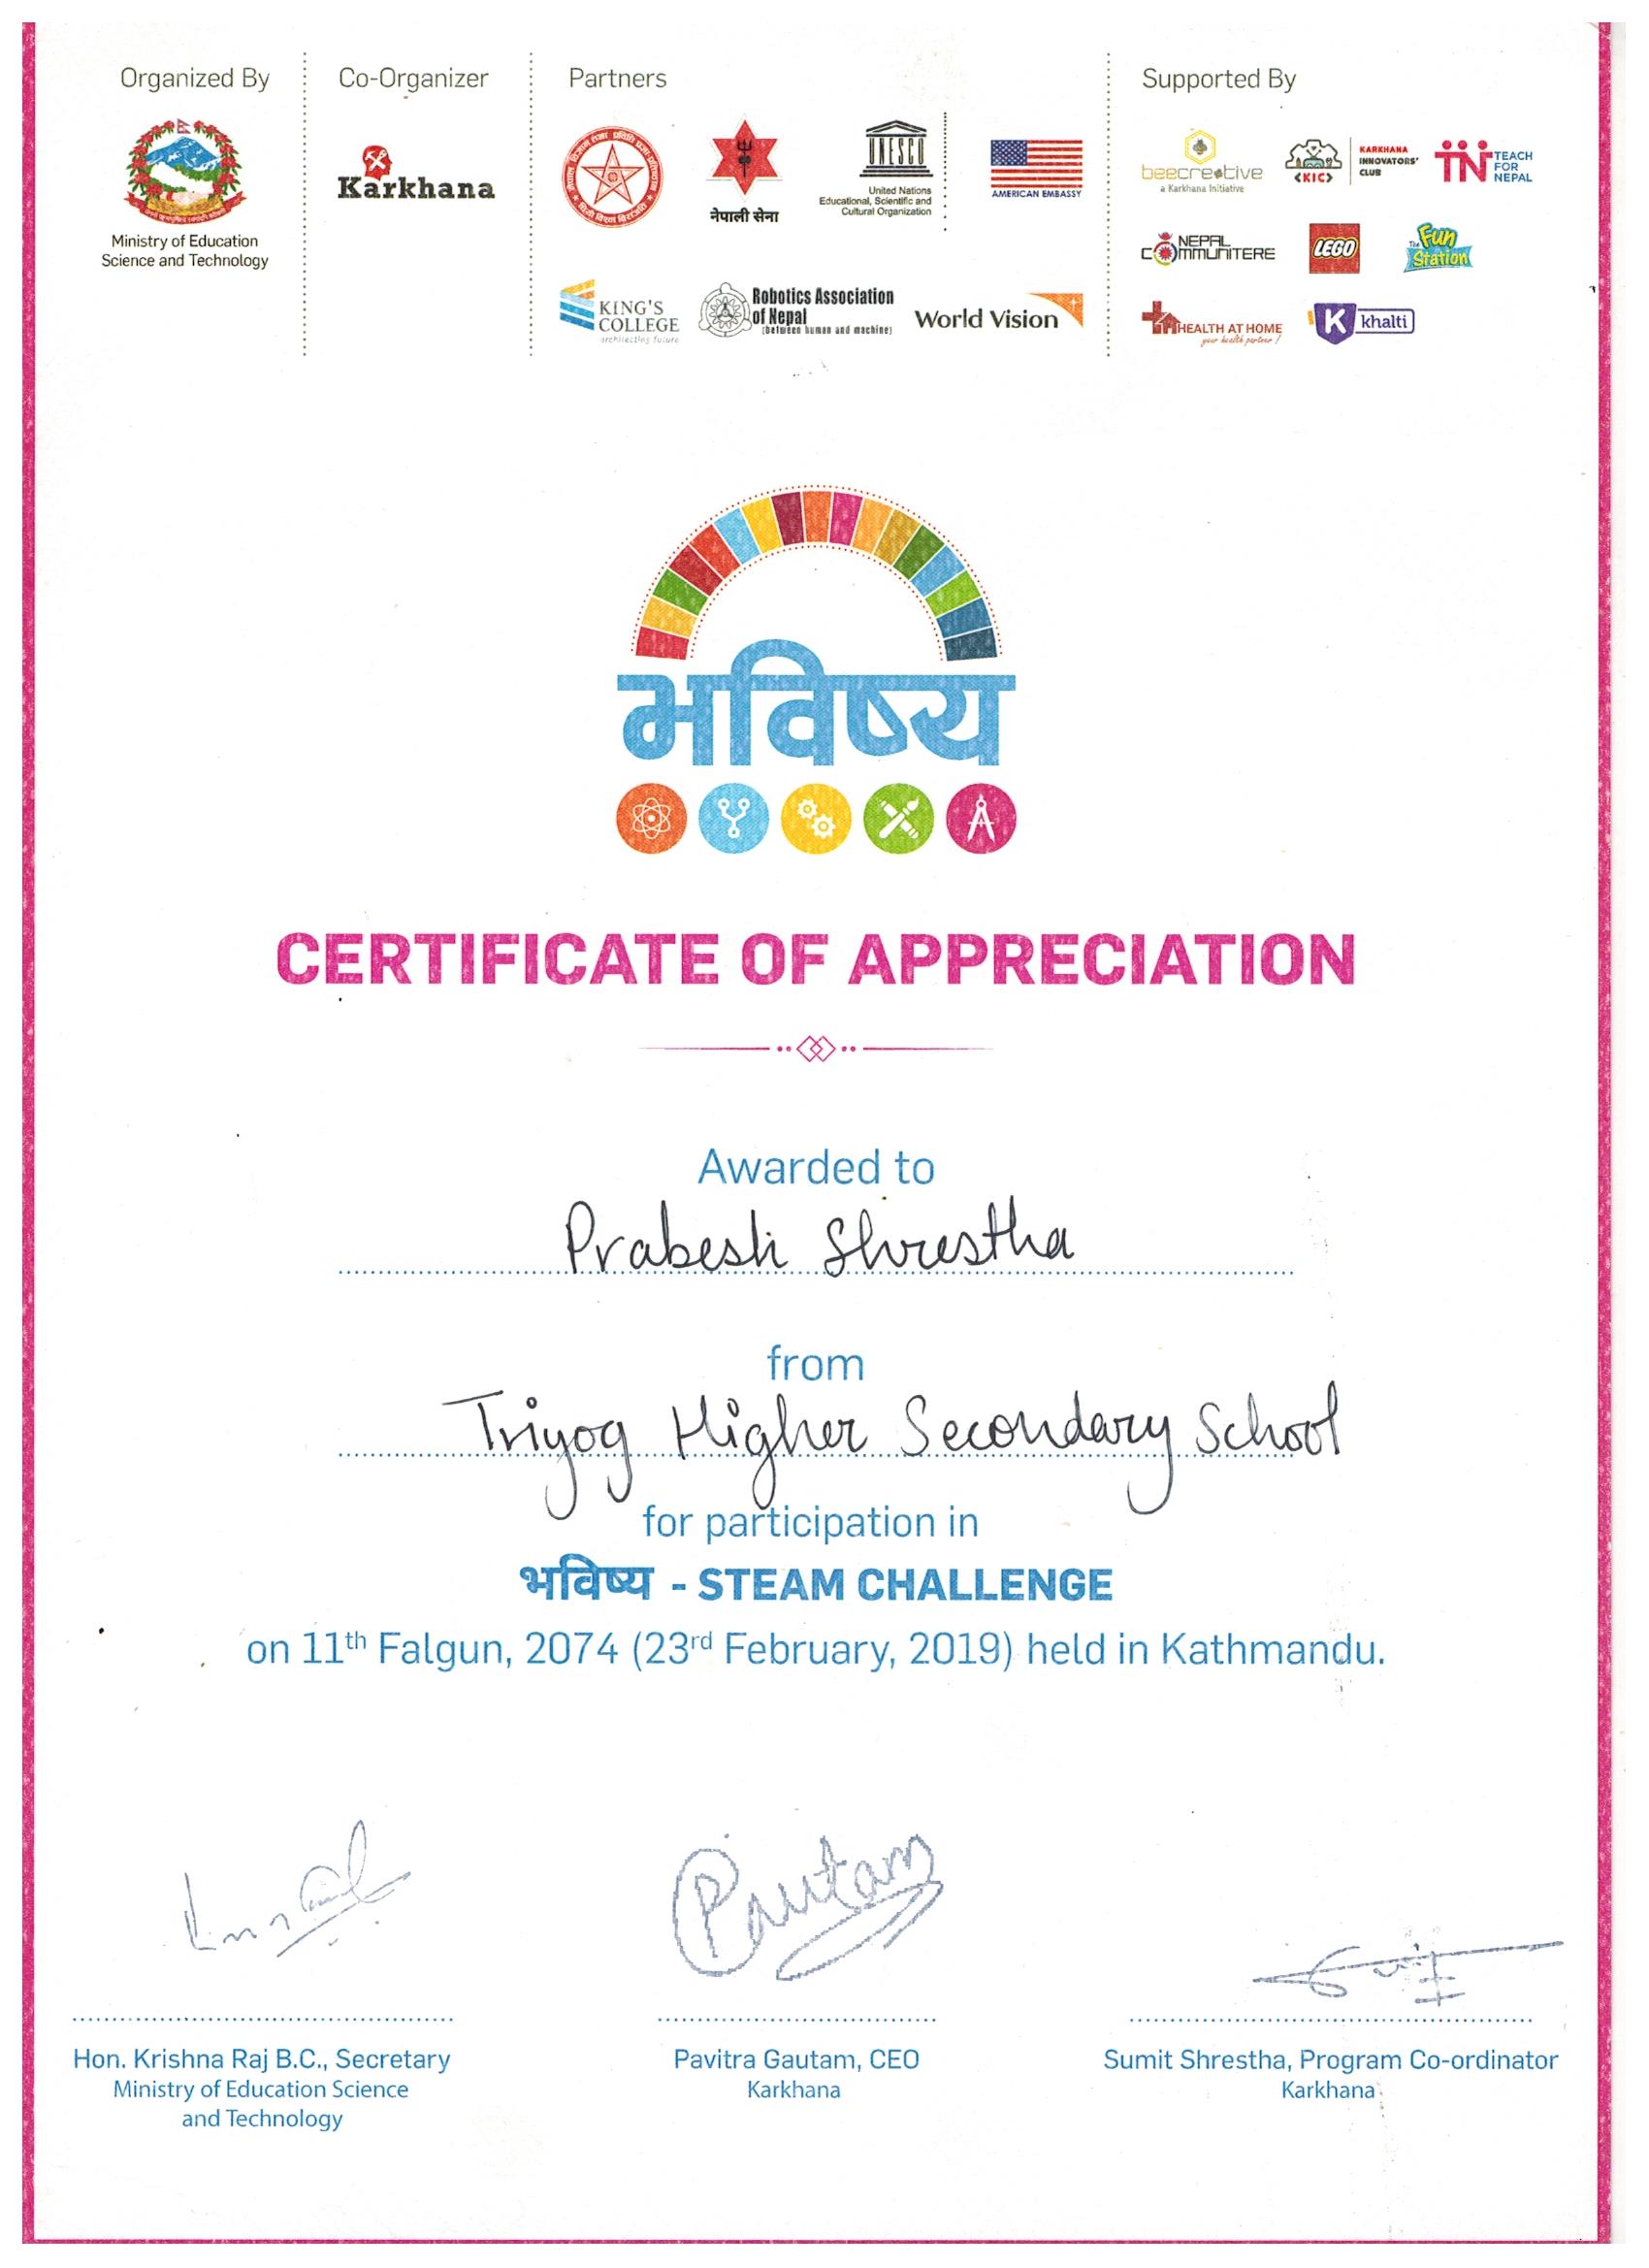 Organized By
Co-Organizer
Partners
Supported By
Ministry of Education
Science and Technology
Karkhana
नेपाली सेना
UNESCO
United Nations
Educational, Scientific and
Cultural Organization
AMERICAN EMBASSY
KING'S
COLLEGE
architecting future
Robotics Association
of Nepal
(between human and machine)
World Vision
beecreative
a Karkhana Initiative
<KIC>
KARKHANA
INNOVATORS'
CLUB
TEACH
FOR
NEPAL
NEPAL
COMMUNITERE
LEGO
The Fun
Station
HEALTH AT HOME
your health partner !
K khalti
भविष्य
CERTIFICATE OF APPRECIATION
Awarded to
Prabesh Shrestha
from
Triyog Higher Secondary School
for participation in
भविष्य - STEAM CHALLENGE
on 11th Falgun, 2074 (23rd February, 2019) held in Kathmandu.
Hon. Krishna Raj B.C., Secretary
Ministry of Education Science
and Technology
Pavitra Gautam, CEO
Karkhana
Sumit Shrestha, Program Co-ordinator
Karkhana